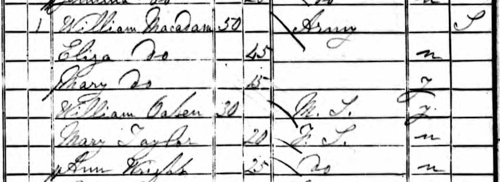 Do n
1 William Macadam 50 Army S
Eliza Do 45 n
Mary Do 15 y
William 30 M. S. y.
Mary Taylor 20 F. S. n
Ann Wright 25 Do n